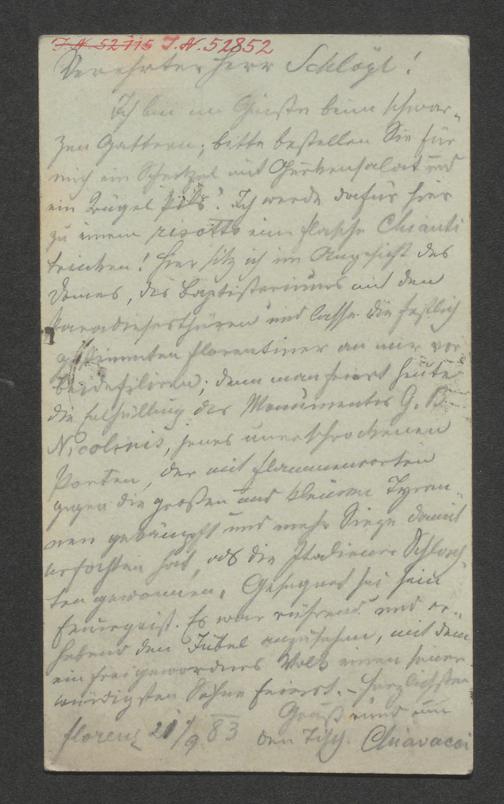 J. N. 52715 J. N. 52852
Verehrter Herr Schlögl!
Ich bin im Geiste beim schwar-
zen Gattern; bitte bestellen Sie für
mich ein Schnitzel mit Gurkensalat und
ein Krügel Pils! Ich werde dafür hier
zu einem risotto eine Flasche Chianti
trinken! Hier sitz ich im Angesicht des
Domes, des Baptisteriums mit den
Paradiesesthüren und lasse die festlich
gestimmten Florentiner an mir vor-
beidefiliren; denn man feiert heute
die Enthüllung des Monumentes G. B.
Nicolinis, jenes unerschrockenen
Poeten, der mit Flammenworten
gegen die großen und kleinen Tyran-
nen gekämpft und mehr Siege damit
erfochten hat, als die Italiener Schlach-
ten gewonnen. Gesegnet sei sein
Feuergeist. Es war rührend und er-
hebend den Jubel anzusehen, mit dem
ein frei gewordnes Volk einen seiner
würdigsten Söhne feiert. – Herzlichsten
Gruß rund um
den Tisch. Chiavacci
Florenz 20/9 83